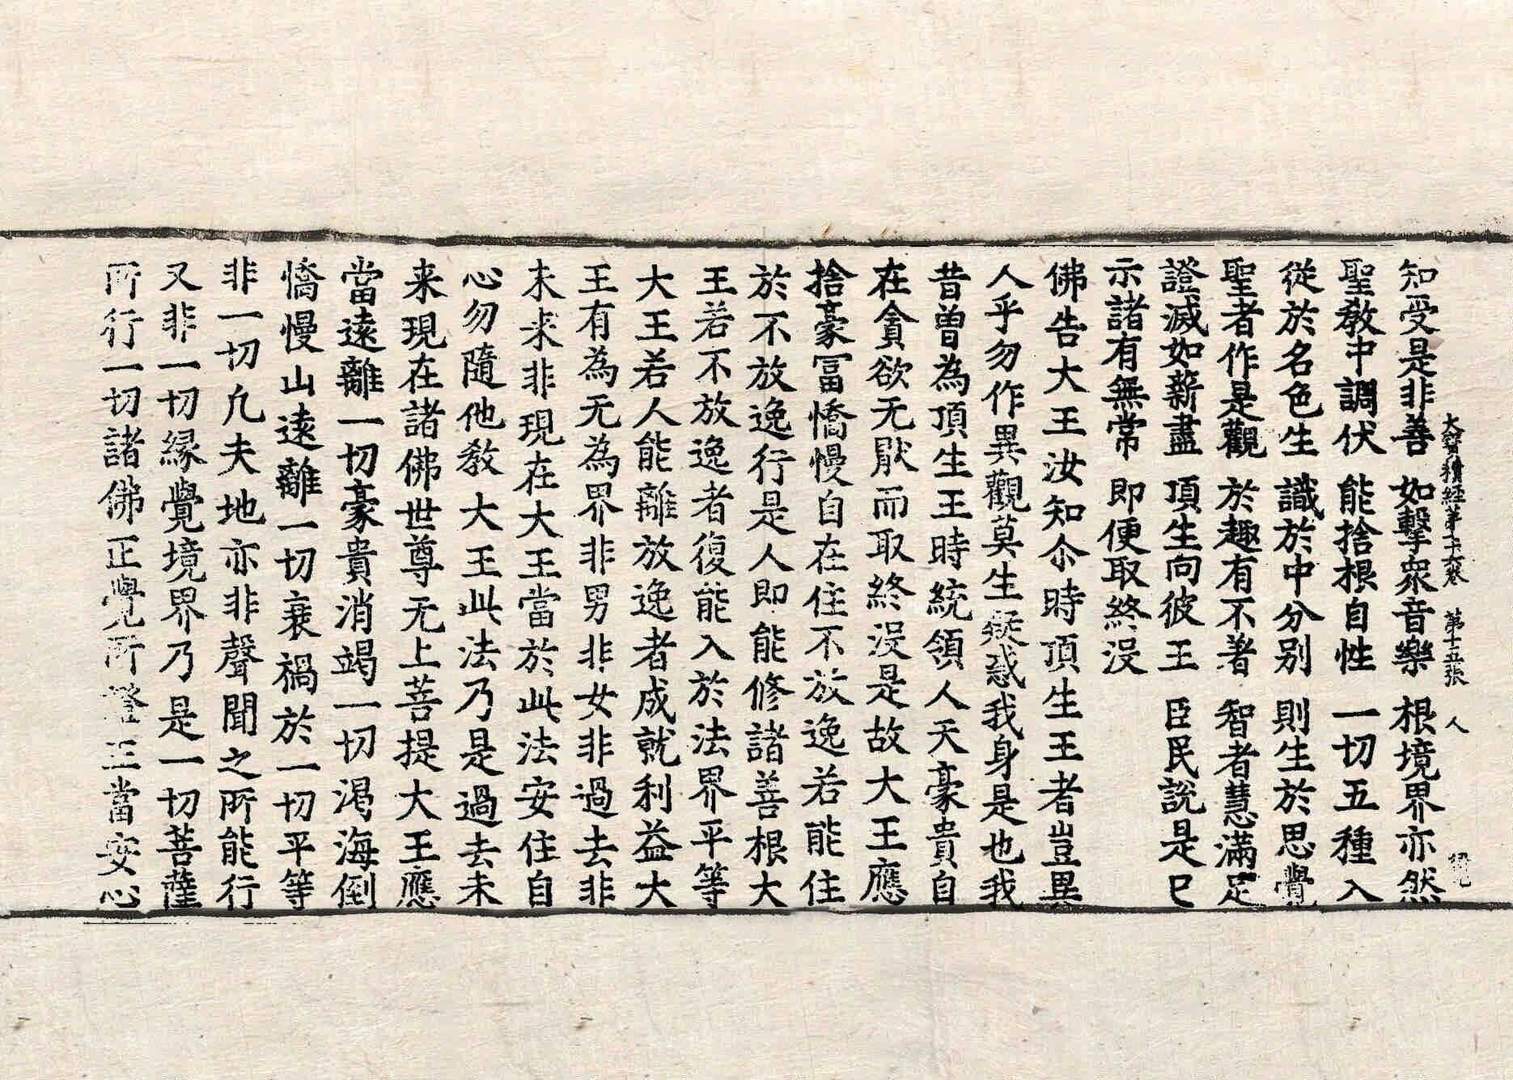 大寶積經第七十六卷 第十五張 人
知受是非善 如擊衆音樂 根境界亦然
聖教中調伏 能捨根自性 一切五種入
從於名色生 識於中分別 則生於思覺
聖者作是觀 於趣有不著 智者慧滿足
證滅如薪盡 頂生向彼王 臣民說是已
示諸有無常 即便取終没
佛告大王汝知尒時頂生王者豈異
人乎勿作異觀莫生疑惑我身是也我
昔曾為頂生王時統領人天豪貴自
在貪欲无猒而取終没是故大王應
捨豪冨憍慢自在住不放逸若能住
於不放逸行是人即能修諸善根大
王若不放逸者復能入於法界平等
大王若人能離放逸者成就利益大
王有為无為界非男非女非過去非
未来非現在大王當於此法安住自
心勿隨他教大王此法乃是過去未
来現在諸佛世尊无上菩提大王應
當遠離一切豪貴消竭一切渴海倒
憍慢山遠離一切衰禍於一切平等
非一切凡夫地亦非聲聞之所能行
又非一切緣覺境界乃是一切菩薩
所行一切諸佛正覺所證王當安心